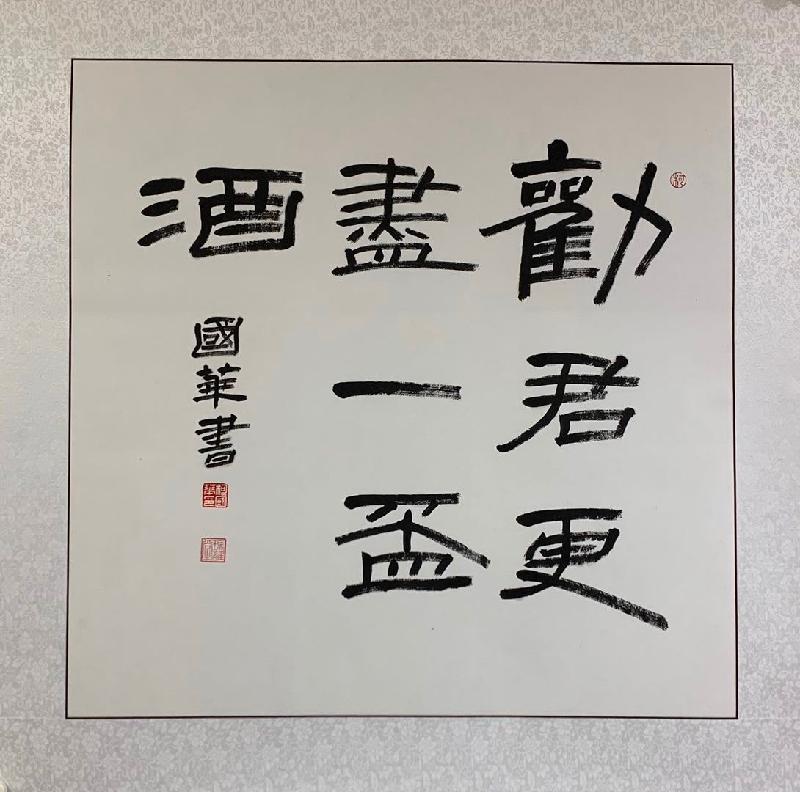 勸君更
盡一盃
酒
國華書